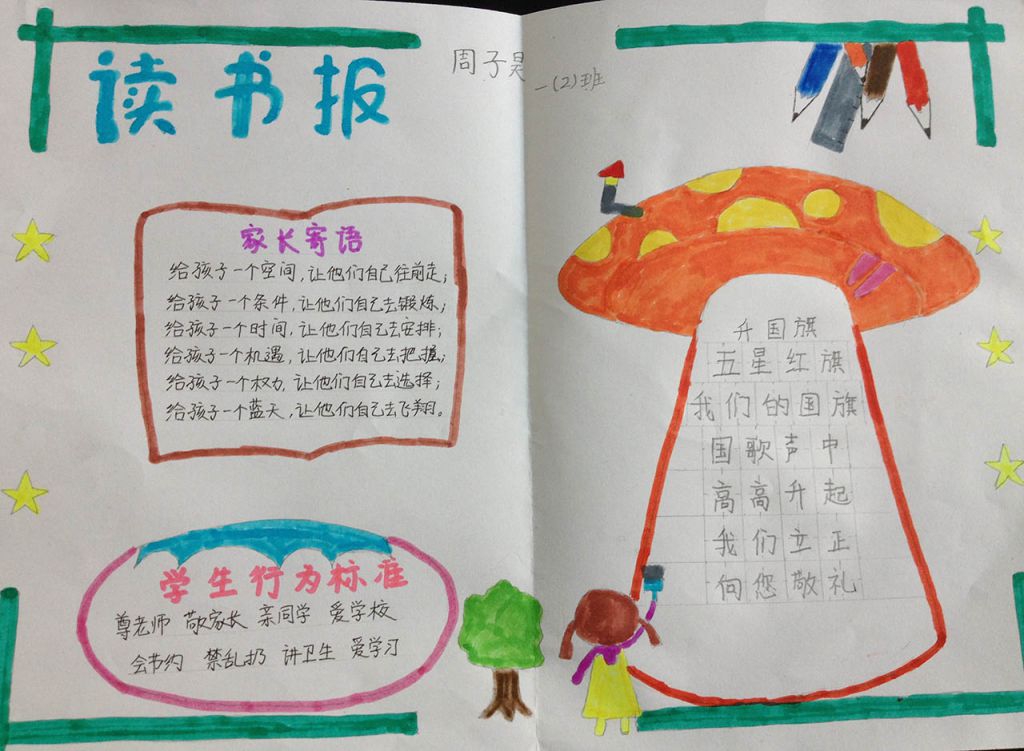 读书报
周子昊
一(2)班
家长寄语
给孩子一个空间,让他们自己往前走;
给孩子一个条件,让他们自己去锻炼;
给孩子一个时间,让他们自己去安排;
给孩子一个机遇,让他们自己去把握;
给孩子一个权力,让他们自己去选择;
给孩子一个蓝天,让他们自己去飞翔。
学生行为标准
尊老师 敬家长 亲同学 爱学校
会节约 禁乱扔 讲卫生 爱学习
升国旗
五星红旗
我们的国旗
国歌声中
高高升起
我们立正
向您敬礼